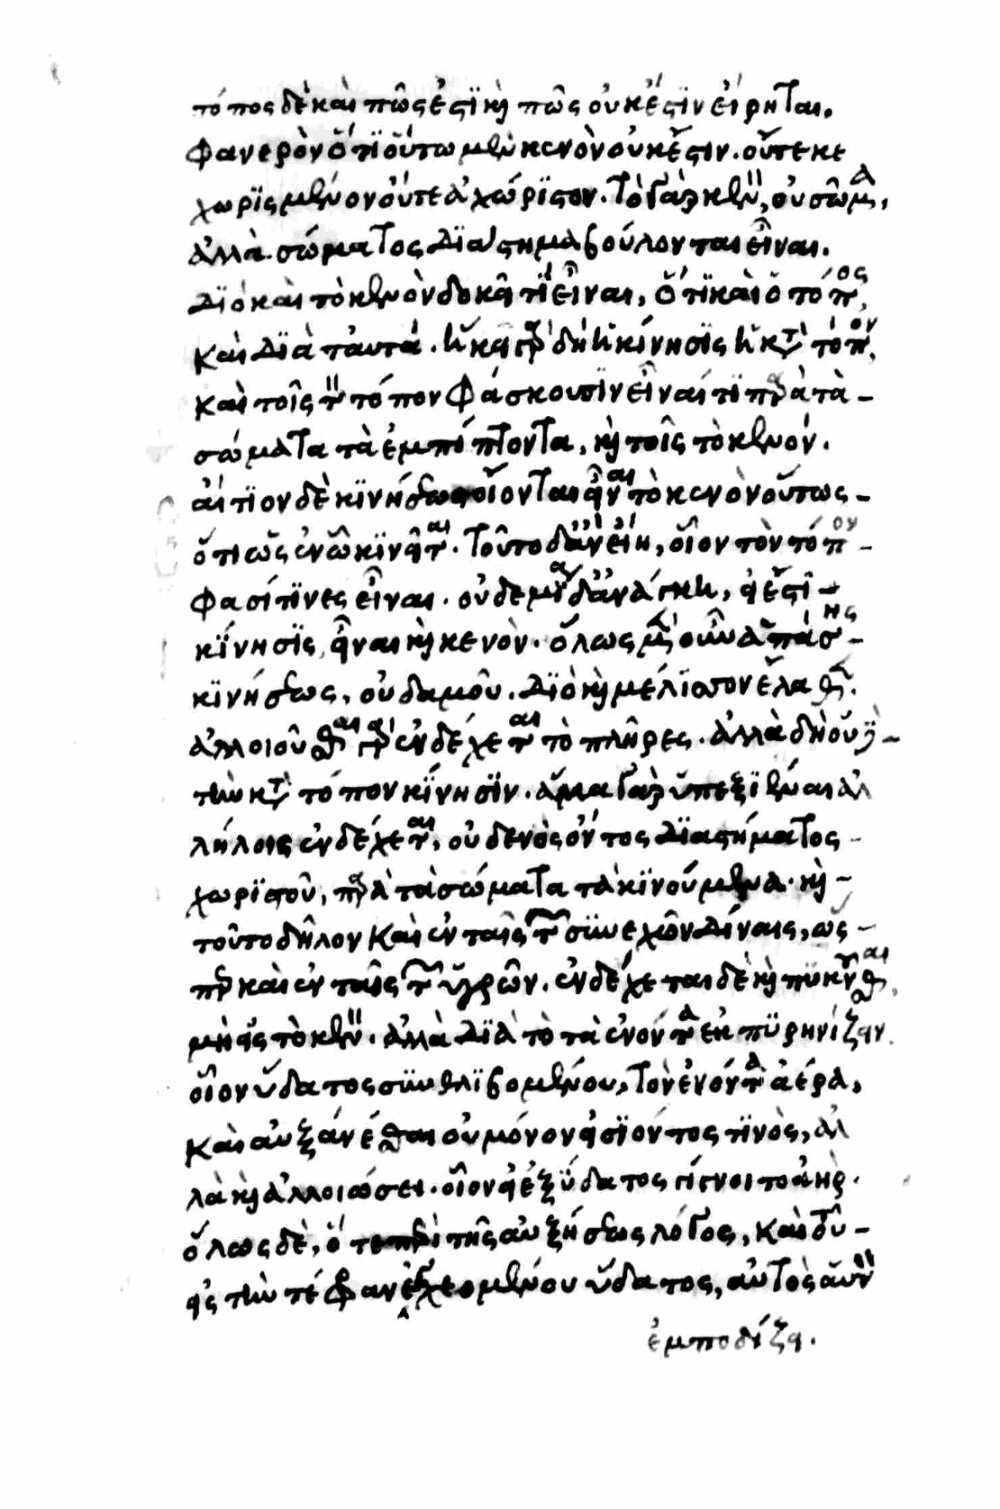 τόπος δὲ καὶ πῶς ἐστὶ καὶ πῶς οὐκ ἔστιν εἴρηται.
Φανερὸν ὅτι οὕτω μὲν κενὸν οὐκ ἔστιν. οὔτε κε
χωρισμένον οὔτε ἀχώριστον. Τὸ γὰρ κενὸν, οὐ σῶμα,
ἀλλὰ σώματος διάστημα βούλονται εἶναι.
Διὸ καὶ τὸ κενὸν δοκεῖ τι εἶναι, ὅτι καὶ ὁ τόπος,
καὶ διὰ ταὐτά. ἥκει γὰρ δὴ ἡ κίνησις ἡ κατὰ τόπον,
καὶ τοῖς τὸν τόπον φάσκουσιν εἶναί τι παρὰ τὰ
σώματα τὰ ἐμπίπτοντα, καὶ τοῖς τὸ κενόν.
αἴτιον δὲ κινήσεως οἴονται εἶναι τὸ κενὸν οὕτως
ὅτι ὡς ἐν ᾧ κινεῖται. Τοῦτο δ' ἂν εἴη, οἷον τὸν τόπον
φασί τινες εἶναι. οὐδεμία δ' ἀνάγκη, εἰ ἔστι
κίνησις, εἶναι καὶ κενὸν. ὅλως μὲν οὖν ἁπάσης
κινήσεως, οὐδαμοῦ. Διὸ καὶ μέλισσον ἔλαθεν.
ἀλλοιοῦσθαι γὰρ ἐνδέχεται τὸ πλῆρες. ἀλλὰ δὴ οὐδὲ
τὴν κατὰ τόπον κίνησιν. ἅμα γὰρ ὑπεξιέναι ἀλ
λήλοις ἐνδέχεται, οὐδενὸς ὄντος διαστήματος
χωριστοῦ, παρὰ τὰ σώματα τὰ κινούμενα. καὶ
τοῦτο δῆλον καὶ ἐν ταῖς τῶν συνεχῶν δίναις, ὥς
περ καὶ ἐν ταῖς τῶν ὑγρῶν. ἐνδέχεται δὲ καὶ πυκνοῦσθαι
μὴ εἰς τὸ κενὸν. ἀλλὰ διὰ τὸ τὰ ἐνόντα ἐκπυρηνίζειν.
οἷον ὕδατος συνθλιβομένου, τὸν ἐνόντα ἀέρα,
καὶ αὐξάνεσθαι οὐ μόνον εἰσιόντος τινὸς, ἀλ
λὰ καὶ ἀλλοιώσει. οἷον εἰ ἐξ ὕδατος γίγνοιτο ἀὴρ.
ὅλως δὲ, ὅ τε περὶ τῆς αὐξήσεως λόγος, καὶ τοῦ
εἰς τὴν τέφραν ἐγχεομένου ὕδατος, αὐτὸς αὑτὸν
ἐμποδίζει.